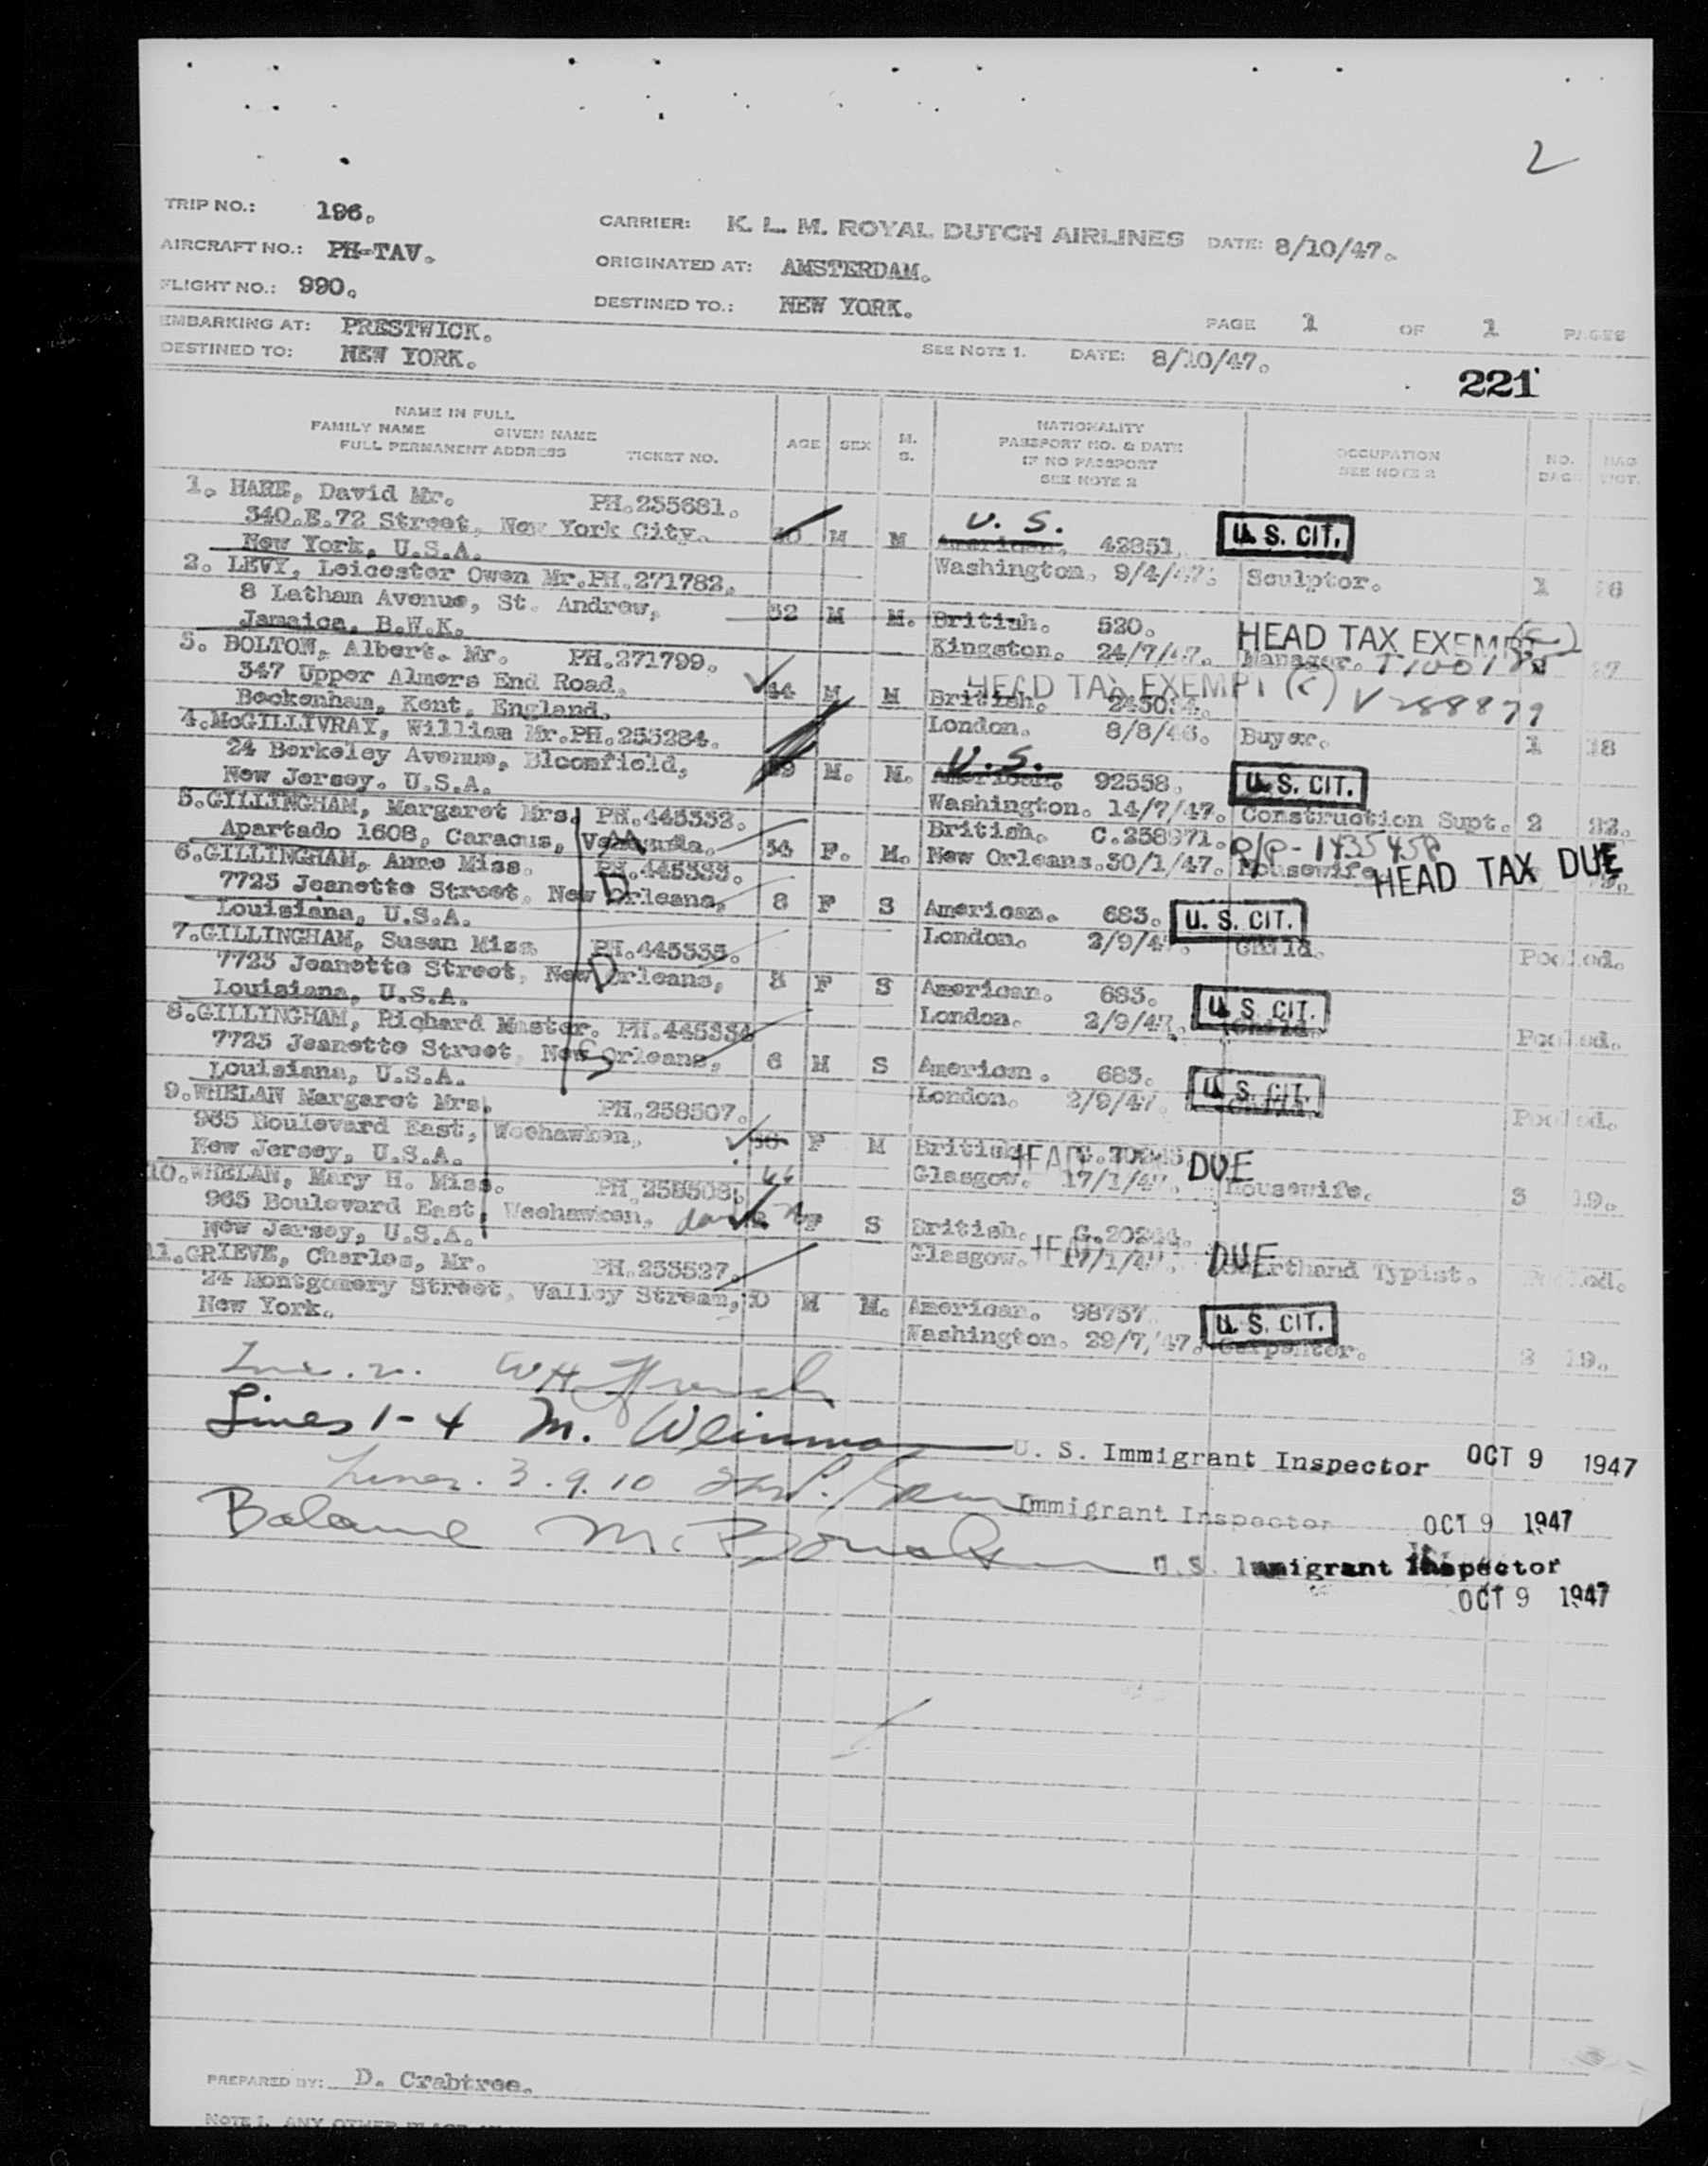 2
TRIP NO.: 196.
CARRIER: K. L. M. ROYAL DUTCH AIRLINES DATE: 8/10/47.
AIRCRAFT NO.: PH-TAV.
ORIGINATED AT: AMSTERDAM.
FLIGHT NO.: 990.
DESTINED TO.: NEW YORK.
PAGE 1 OF 1 PAGES
EMBARKING AT: PRESTWICK.
DESTINED TO: NEW YORK.
SEE NOTE 1. DATE: 8/10/47.
221
NAME IN FULL
FAMILY NAME GIVEN NAME
FULL PERMANENT ADDRESS TICKET NO.
AGE SEX M. S.
NATIONALITY
PASSPORT NO. & DATE
IF NO PASSPORT
SEE NOTE 2
OCCUPATION
SEE NOTE 2
NO.
1. HARE, David Mr. PH.255681.
340.E.72 Street, New York City.
New York, U.S.A.
M M U. S. American. 42851. U. S. CIT.
Washington. 9/4/47. Sculptor. 1
2. LEVY, Leicester Owen Mr.PH.271782.
8 Latham Avenue, St. Andrew,
Jamaica, B.W.K.
52 M M. British. 520. HEAD TAX EXEMPT
Kingston. 24/7/47. Manager.
3. BOLTON, Albert. Mr. PH.271799.
347 Upper Almers End Road,
Beckenham, Kent, England.
44 M M British. HEAD TAX EXEMPT (c) V288879
London. 8/8/46. Buyer. 1 18
4.McGILLIVRAY, William Mr.PH.255284.
24 Berkeley Avenue, Bloomfield,
New Jersey. U.S.A.
M. M. U.S. American. 92558. U.S. CIT.
Washington. 14/7/47. Construction Supt. 2 22.
5.GILLINGHAM, Margaret Mrs. PH.445332.
Apartado 1608, Caracus,
34 F. M. British. C.258971. P/P-1435458
New Orleans.30/1/47. Housewife. HEAD TAX DUE
6.GILLINGHAM, Anne Miss. PH.445333.
7723 Jeanette Street, New Orleans,
Louisiana, U.S.A.
D
8 F S American. 683. U. S. CIT.
London. 2/9/47. Child. Pooled.
7.GILLINGHAM, Susan Miss PH.445335.
7723 Jeanette Street, New Orleans,
Louisiana, U.S.A.
D
8 F S American. 683. U. S. CIT.
London. 2/9/47. Child. Pooled.
8.GILLINGHAM, Richard Master. PH.445334
7723 Jeanette Street, New Orleans,
Louisiana, U.S.A.
S
6 M S American. 683. U. S. CIT.
London. 2/9/47. Child. Pooled.
9.WHELAN Margaret Mrs. PH.258507.
965 Boulevard East, Weehawken,
New Jersey, U.S.A.
F M British. HEAD DUE
Glasgow. 17/1/47. Housewife. 3 19.
10.WHELAN, Mary H. Miss. PH.258508.
965 Boulevard East, Weehawken,
New Jersey, U.S.A.
F S British. G.20244.
Glasgow. 17/1/47. DUE Shorthand Typist. Pooled.
11.GRIEVE, Charles, Mr. PH.253527.
24 Montgomery Street, Valley Stream,
New York.
M M. American. 98757. U. S. CIT.
Washington. 29/7/47. Carpenter. 3 19.
Lines 1-4 M. Weinman U. S. Immigrant Inspector OCT 9 1947
Lines. 3.9.10 Immigrant Inspector OCT 9 1947
Balance U.S. Immigrant Inspector
OCT 9 1947
PREPARED BY: D. Crabtree.